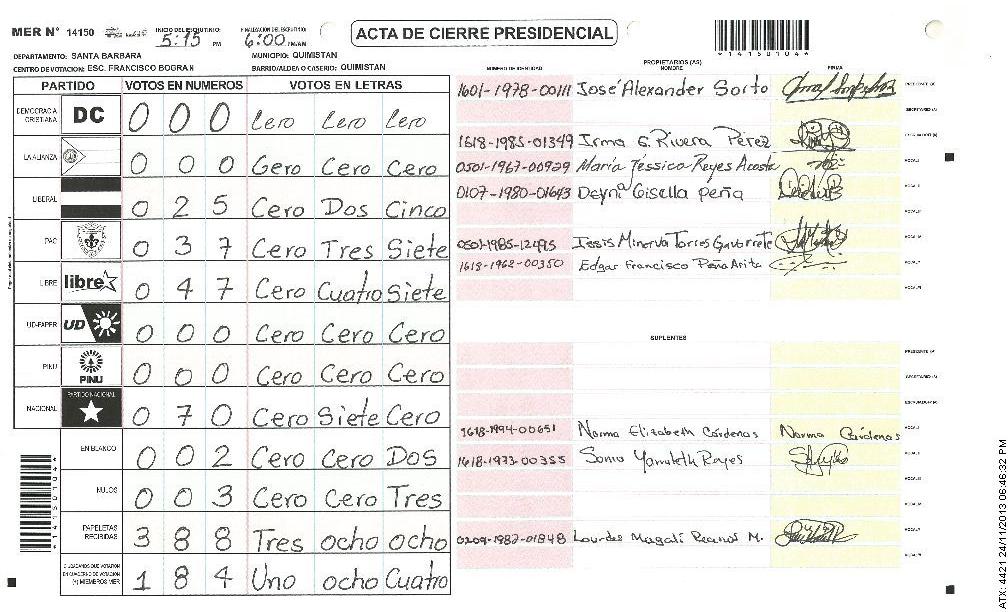 MER N° 14150 INICIO DEL ESCRUTINIO: 5:15 PM FINALIZACION DEL ESCRUTINIO: 6:00 PM/AM ACTA DE CIERRE PRESIDENCIAL
DEPARTAMENTO: SANTA BARBARA MUNICIPIO: QUIMISTAN
CENTRO DE VOTACION: ESC. FRANCISCO BOGRAN BARRIO/ALDEA O CASERIO: QUIMISTAN
1 4 1 5 0 1 0 4
PARTIDO VOTOS EN NUMEROS VOTOS EN LETRAS
DEMOCRACIA CRISTIANA DC 0 0 0 Cero Cero Cero
LA ALIANZA 0 0 0 Cero Cero Cero
LIBERAL 0 2 5 Cero Dos Cinco
PAC 0 3 7 Cero Tres Siete
LIBRE libre 0 4 7 Cero Cuatro Siete
UD-FAPER UD 0 0 0 Cero Cero Cero
PINU PINU 0 0 0 Cero Cero Cero
NACIONAL PARTIDO NACIONAL 0 7 0 Cero Siete Cero
EN BLANCO 0 0 2 Cero Cero Dos
NULOS 0 0 3 Cero Cero Tres
PAPELETAS RECIBIDAS 3 8 8 Tres ocho ocho
CIUDADANOS QUE VOTARON EN CUADERNO DE VOTACION (+) MIEMBROS MER 1 8 4 Uno ocho Cuatro
NUMERO DE IDENTIDAD PROPIETARIOS (AS) NOMBRE FIRMA
1601-1978-00111 José Alexander Sorto
1618-1985-01349 Irma G. Rivera Pérez
0501-1967-00929 María Jessica Reyes Acosta
0107-1980-01643 Deyna Gisella Peña
0501-1985-12495 Iesis Minerva Torres
1618-1962-00350 Edgar Francisco Peña Arita
SUPLENTES
1618-1994-00651 Norma Elizabeth Cárdenas Norma Cárdenas
1618-1973-00355 Sonia Yamileth Reyes
0209-1982-01848 Lourdes Magali M.
ATX: 4421 24/11/2013 06:46:32 PM